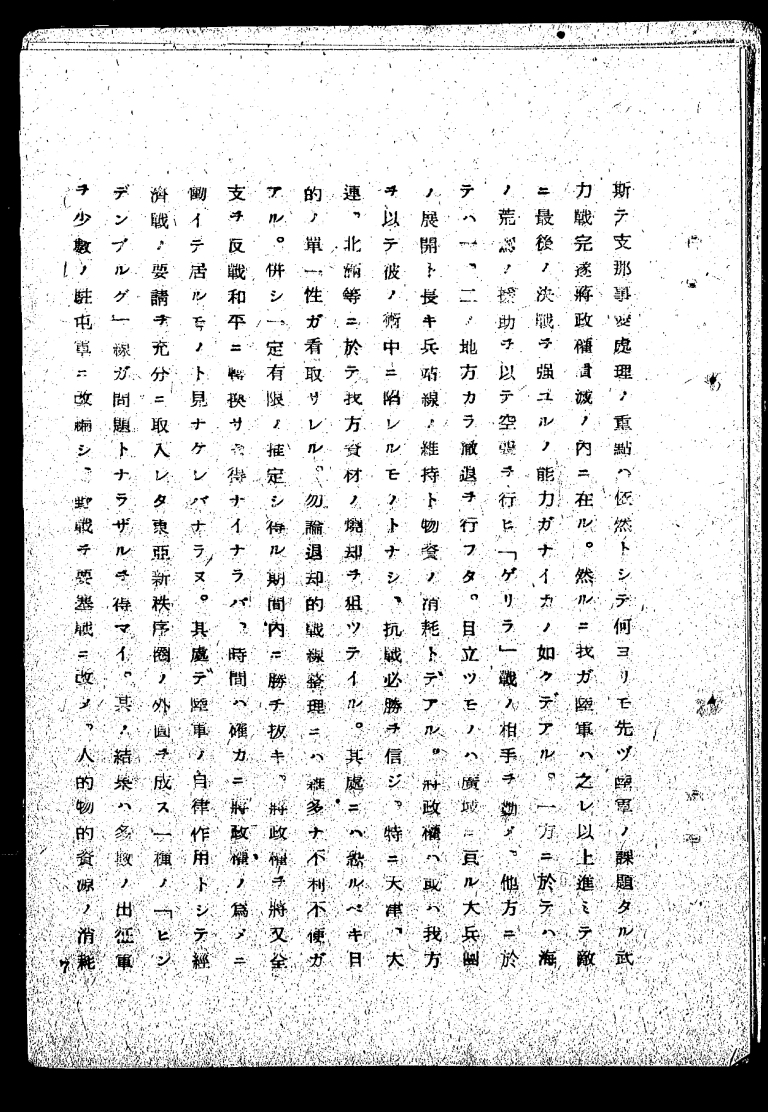 斯テ支那事変處理ノ重點ハ依然トシテ何ヨリモ先ヅ陸軍ノ課題タル武
力戰完遂將政權潰滅ノ內ニ在ル。然ルニ我ガ陸軍ハ之レ以上進ミテ敵
ニ最後ノ決戰ヲ强ユルノ能力ガナイカノ如クデアル。一方ニ於テハ海
ノ荒鷲ノ援助ヲ以テ空襲ヲ行ヒ「ゲリラ」戰ノ相手ヲ勤メ、他方ニ於
テハ一、二ノ地方カラ撤退ヲ行フタ。目立ツモノハ廣域ニ亘ル大兵團
ノ展開ト長キ兵站線ノ維持ト物資ノ消耗トデアル。將政權ハ或ハ我方
ヲ以テ彼ノ術中ニ陷レルモノトナシ、抗戰必勝ヲ信ジ、特ニ天津、大
連、北 等ニ於テ我方資材ノ燒却ヲ狙ツテイル。其處ニハ恐ルベキ目
的ノ單一性ガ看取サレル。勿論退却的戰線整理ニハ雜多ナ不利不便ガ
アル。併シ一定有限ノ推定シ得ル期間內ニ勝チ拔キ、將政權ヲ將又全
支ヲ反戰和平ニ轉換サセ得ナイナラバ、時間ハ確カニ將政權ノ爲メニ
働イテ居ルモノト見ナケレバナラヌ。其處デ陸軍ノ自律作用トシテ經
濟戰ノ要請ヲ充分ニ取入レタ東亞新秩序圈ノ外圍ヲ成ス一種ノ「ヒン
デンブルグ」線ガ問題トナラザルヲ得マイ。其ノ結果ハ多數ノ出征軍
ヲ少數ノ駐屯軍ニ改編シ、野戰ヲ要塞戰ニ改メ、人的物的資源ノ消耗
7